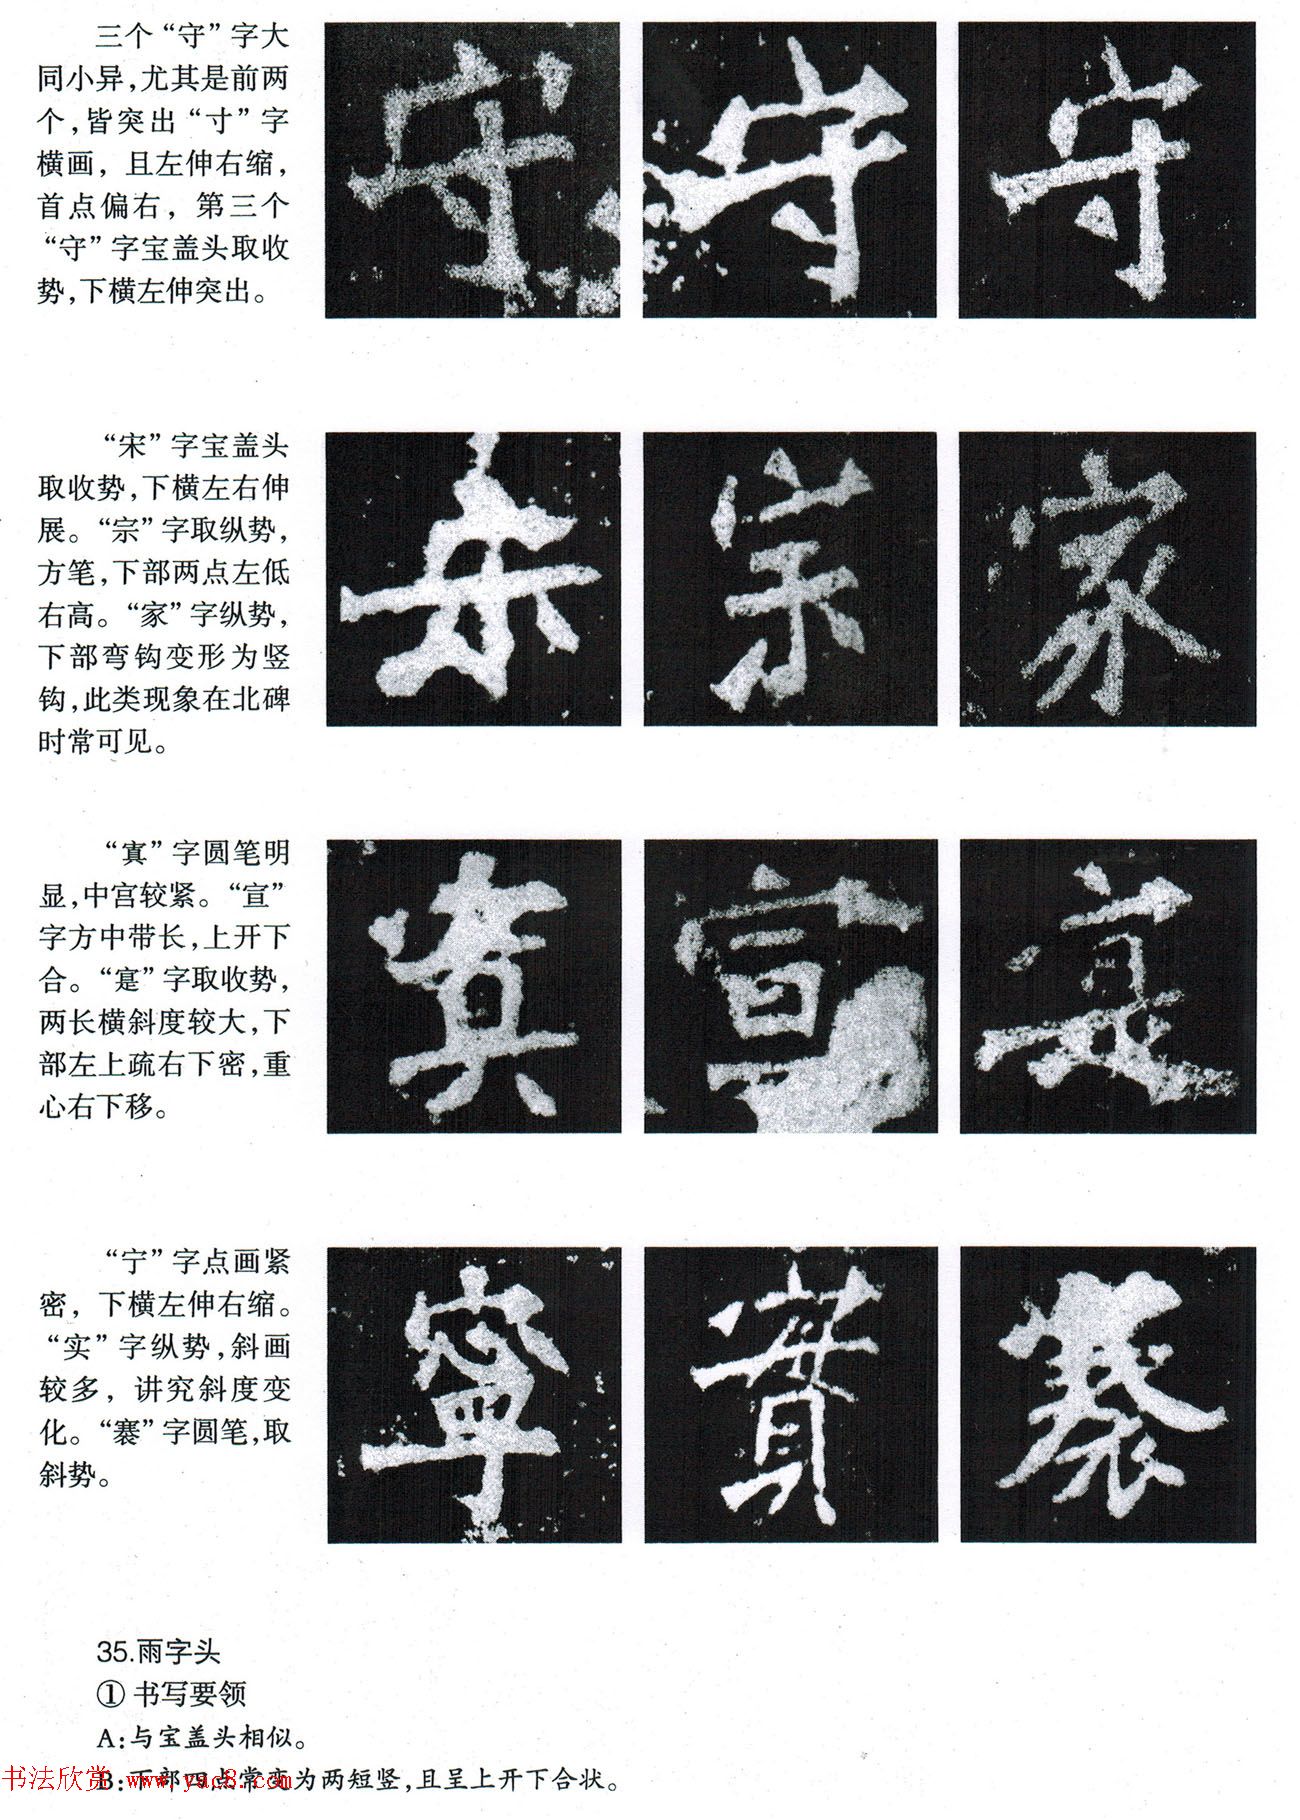 三个“守”字大
同小异,尤其是前两
个,皆突出“寸”字
横画,且左伸右缩,
首点偏右,第三个
“守”字宝盖头取收
势,下横左伸突出。
守 守 守
“宋”字宝盖头
取收势,下横左右伸
展。“宗”字取纵势,
方笔,下部两点左低
右高。“家”字纵势,
下部弯钩变形为竖
钩,此类现象在北碑
时常可见。
宋 宗 家
“寘”字圆笔明
显,中宫较紧。“宣”
字方中带长,上开下
合。“寔”字取收势,
两长横斜度较大,下
部左上疏右下密,重
心右下移。
寘 宣 寔
“宁”字点画紧
密,下横左伸右缩。
“实”字纵势,斜画
较多,讲究斜度变
化。“褰”字圆笔,取
斜势。
寧 實 褰
35.雨字头
① 书写要领
A:与宝盖头相似。
B:下部四点常变为两短竖,且呈上开下合状。
书法欣赏 www.yac8.com